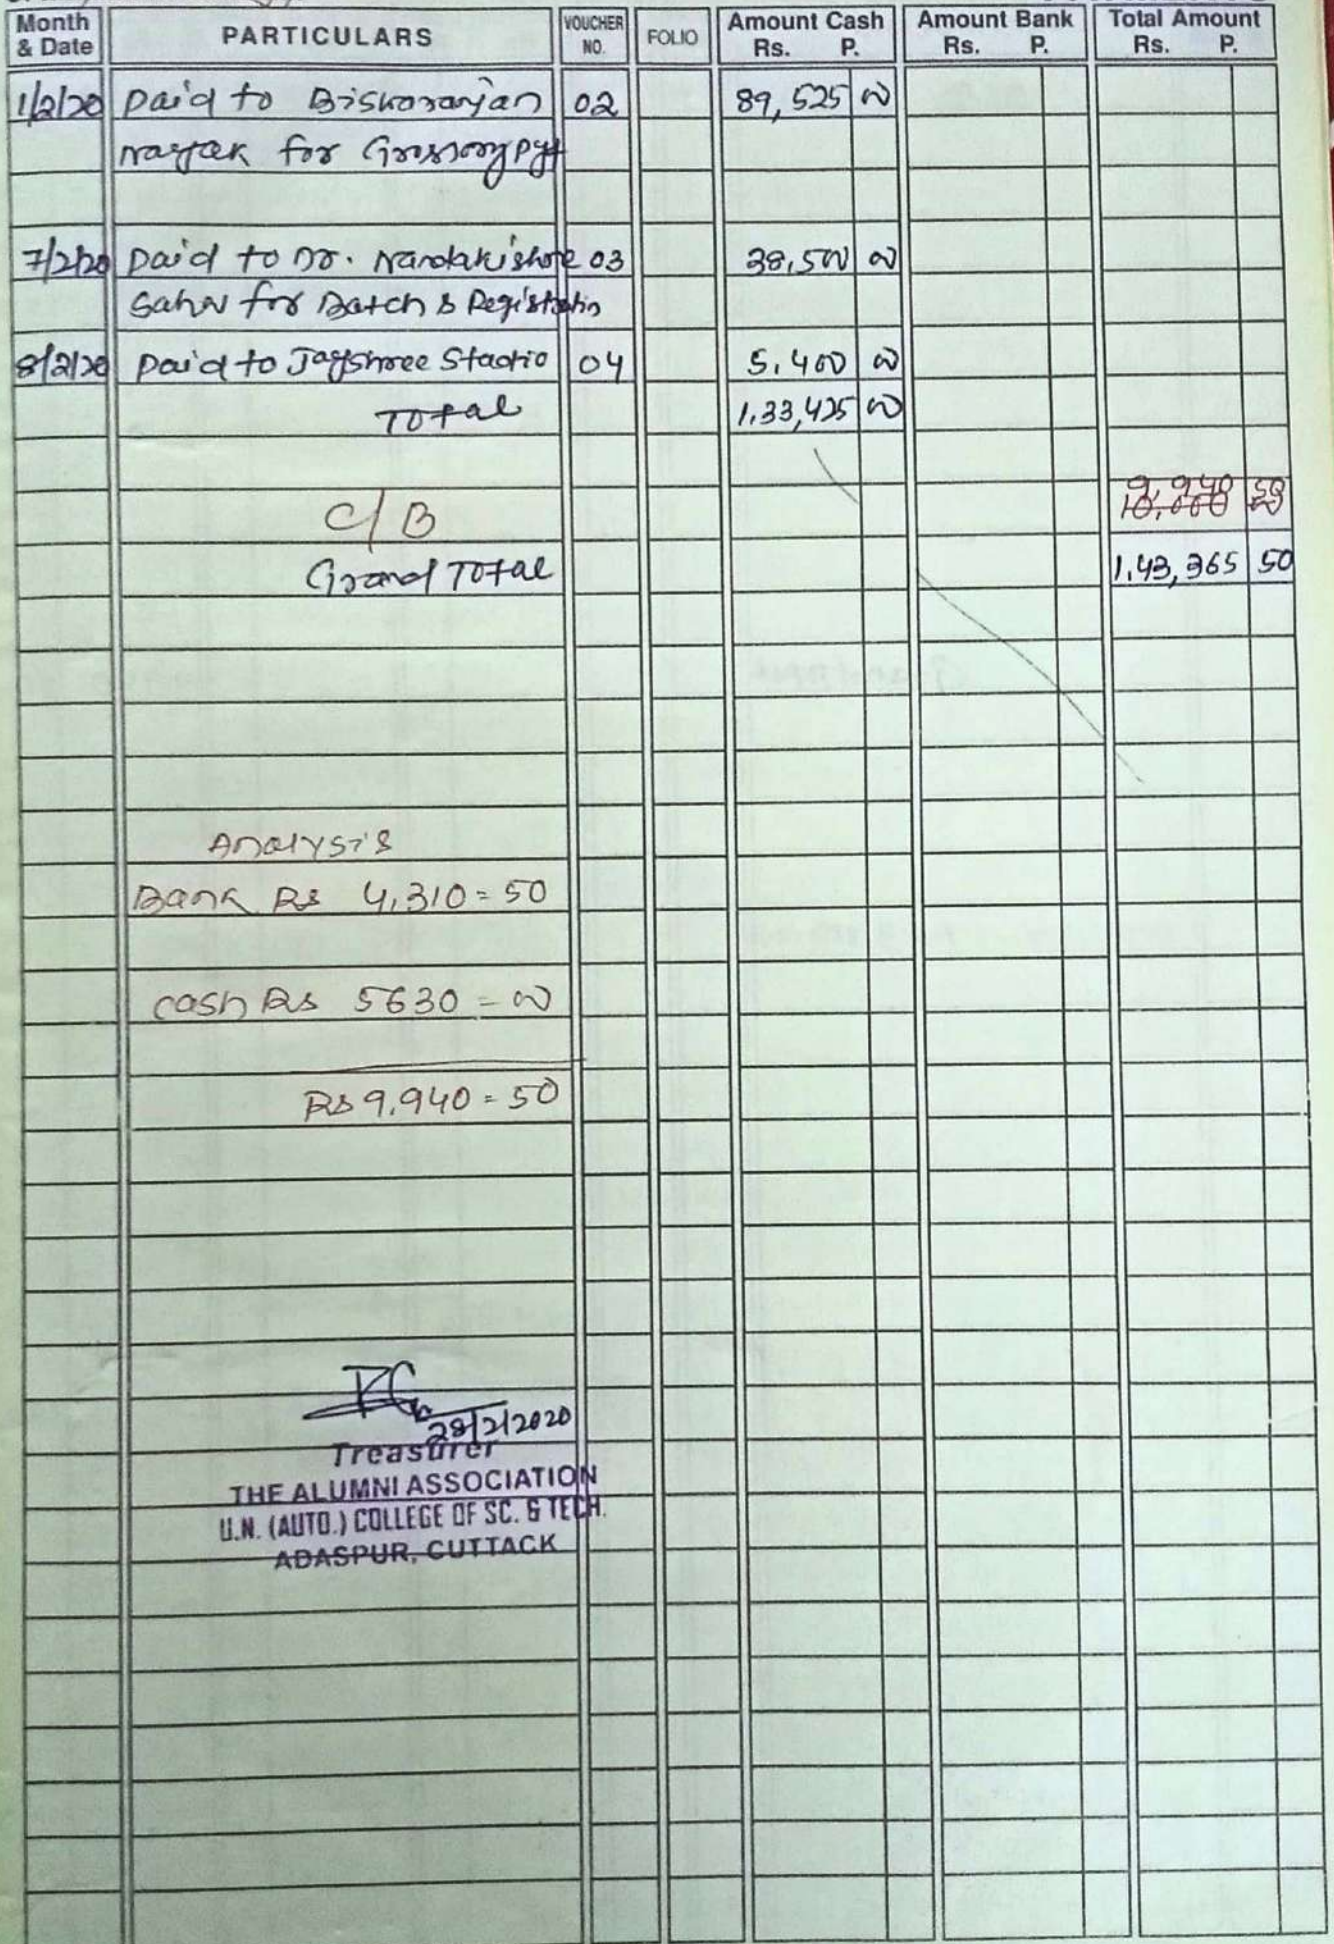 Month & Date PARTICULARS VOUCHER NO. FOLIO Amount Cash Rs. P. Amount Bank Rs. P. Total Amount Rs. P.
1/2/20 Paid to Biskaranjan 02 89,525 00
Nayak for Grossory pyt
7/2/20 Paid to Dr. Nandakishore 03 38,500 00
Sahu for Batch & Registratin
8/2/20 Paid to Jayshree Stadio 04 5,400 00
Total 1,33,425 00
9,940 50
C/B 10,000 00
Grand Total 1,43,365 50
Analysis
Bank Rs 4,310=50
Cash Rs 5630=00
Rs 9,940=50
28/2/2020
Treasurer
THE ALUMNI ASSOCIATION
U.N. (AUTO.) COLLEGE OF SC. & TECH.
ADASPUR, CUTTACK